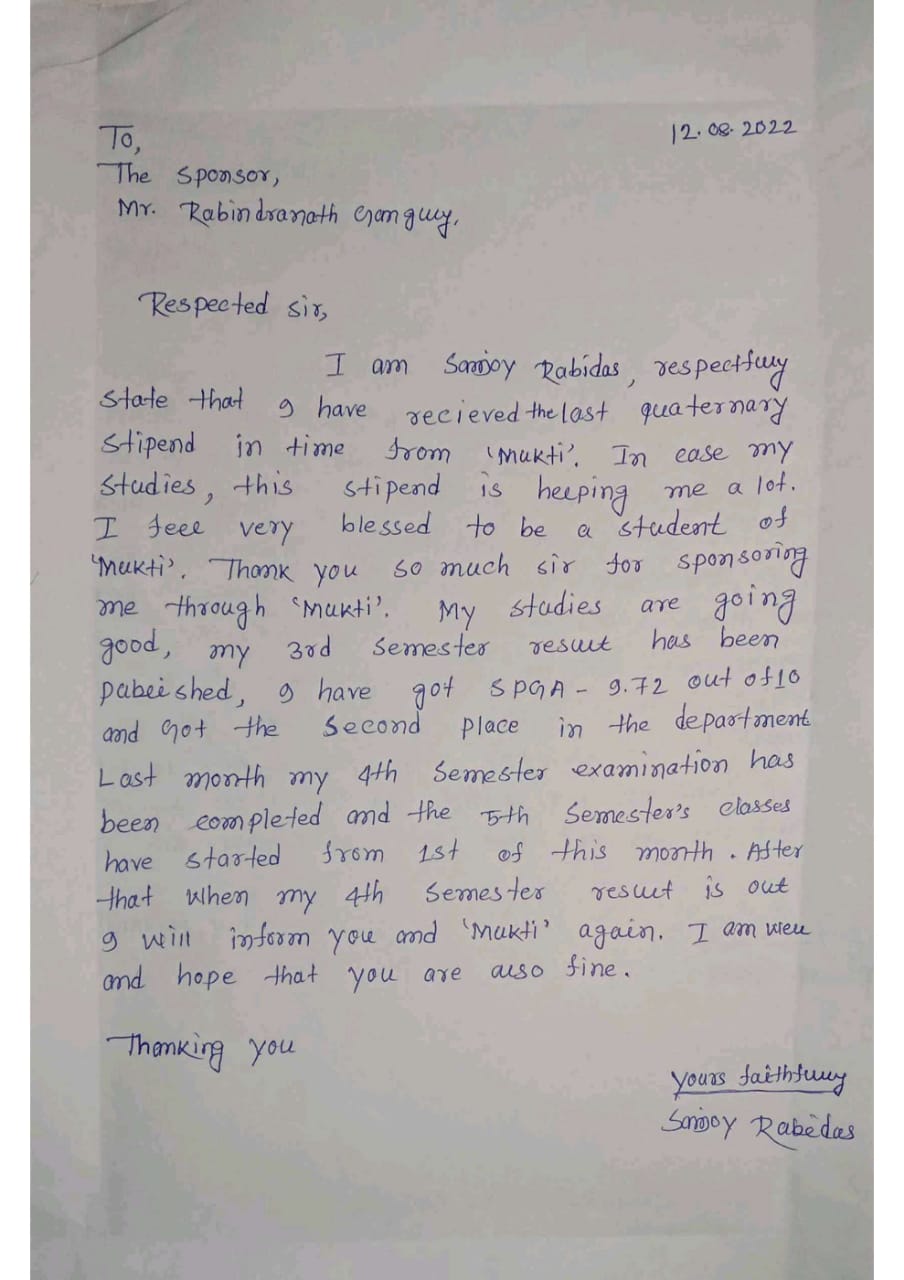 To,
12.08.2022
The Sponsor,
Mr. Rabindranath Ganguly.
Respected Sir,
I am Sanjoy Rabidas, respectfully
state that I have recieved the last quaternary
stipend in time from 'Mukti'. In case my
studies, this stipend is helping me a lot.
I feel very blessed to be a student of
'Mukti'. Thank you so much sir for sponsoring
me through 'Mukti'. My studies are going
good, my 3rd Semester result has been
published, I have got SPGA - 9.72 out of 10
and Got the Second place in the department
Last month my 4th Semester examination has
been completed and the 5th Semester's classes
have started from 1st of this month. After
that when my 4th Semester result is out
I will inform you and 'Mukti' again. I am well
and hope that you are also fine.
Thanking you
Yours faithfully
Sanjoy Rabidas